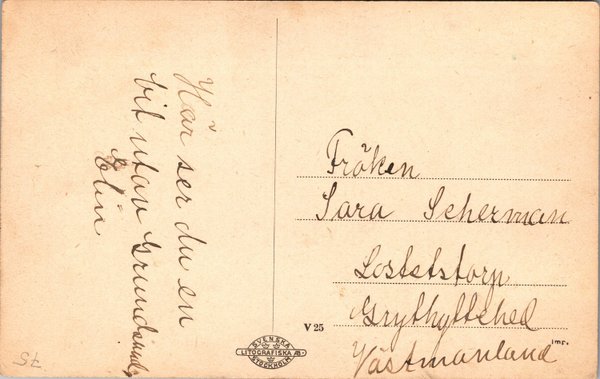 Här ser du en
bit utav Grundsunda
Elin
Fröken
Sara Scherman
Loststorp
Grythyttehed
Västmanland
V 25
SVENSKA
LITOGRAFISKA AB.
STOCKHOLM
75